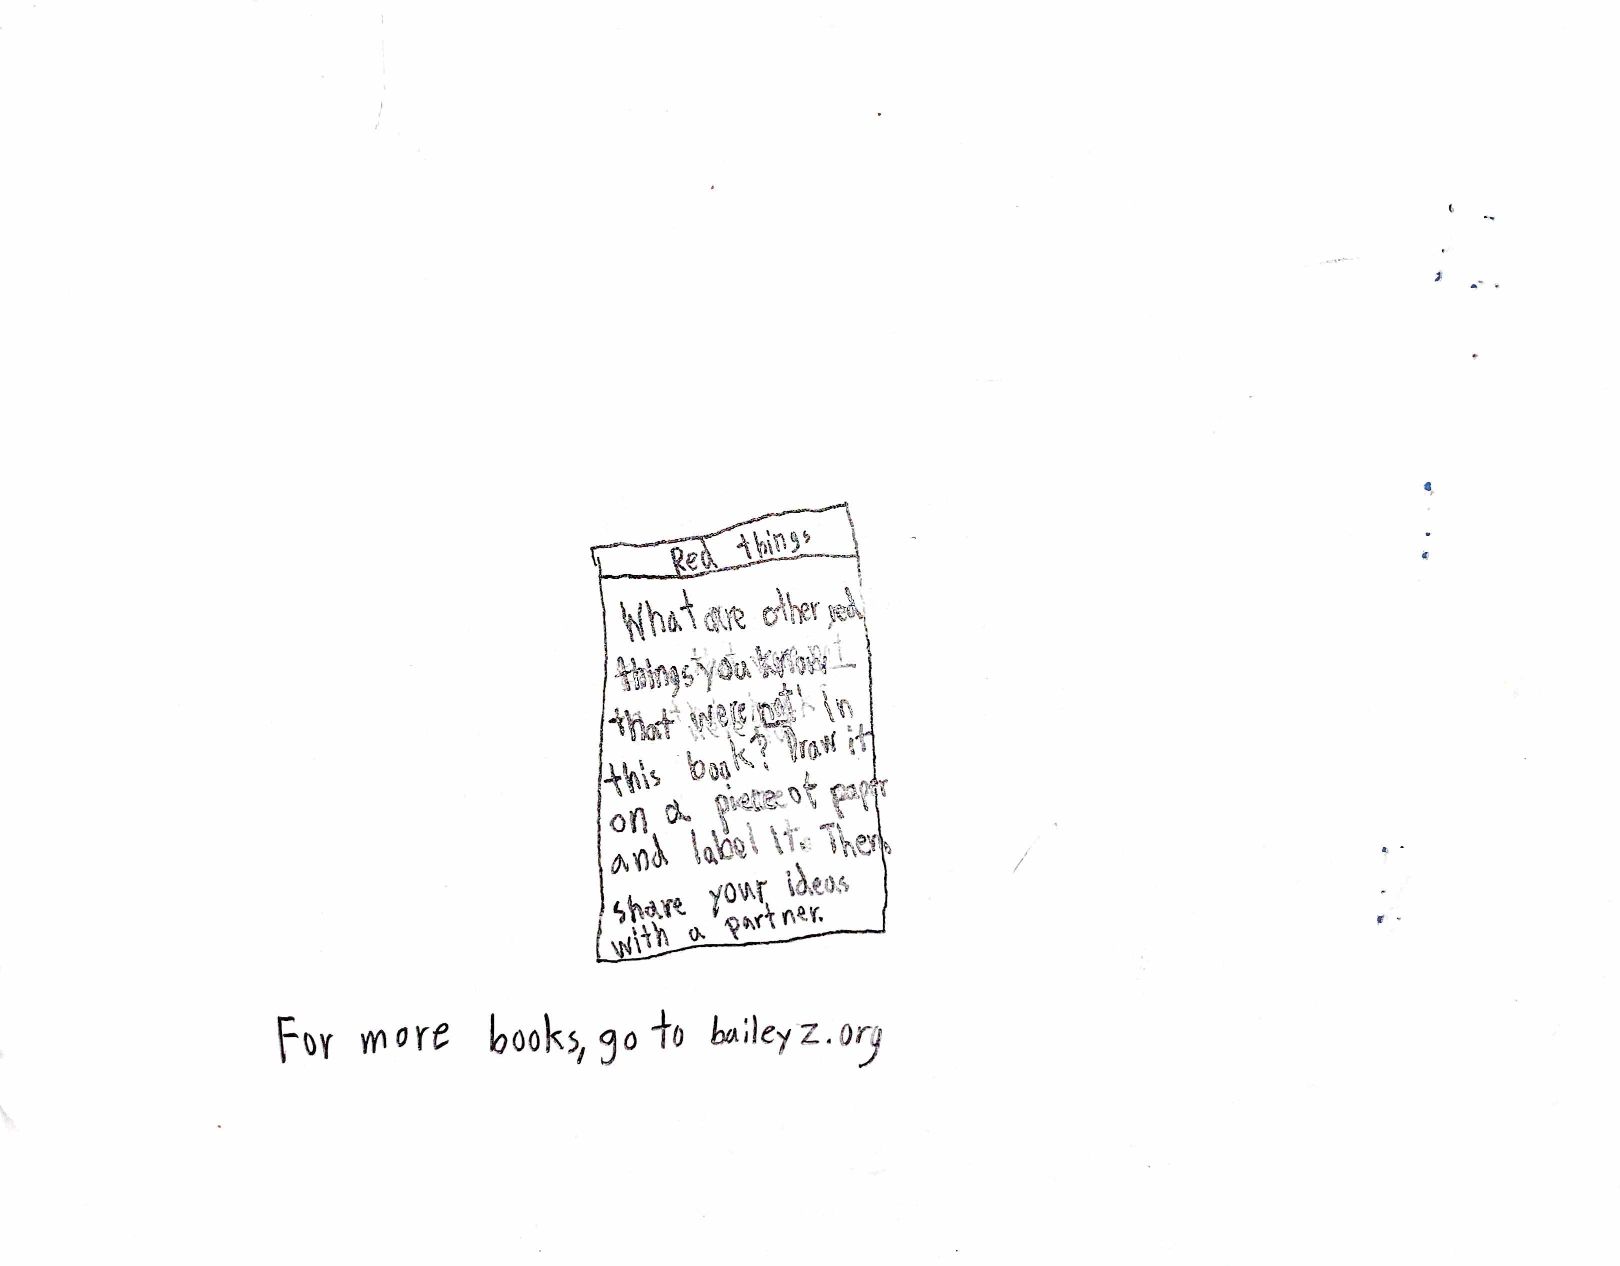 Red things
What are other red
things you know
that were not in
this book? Draw it
on a piece of paper
and label it. Then,
share your ideas
with a partner.
For more books, go to baileyz.org